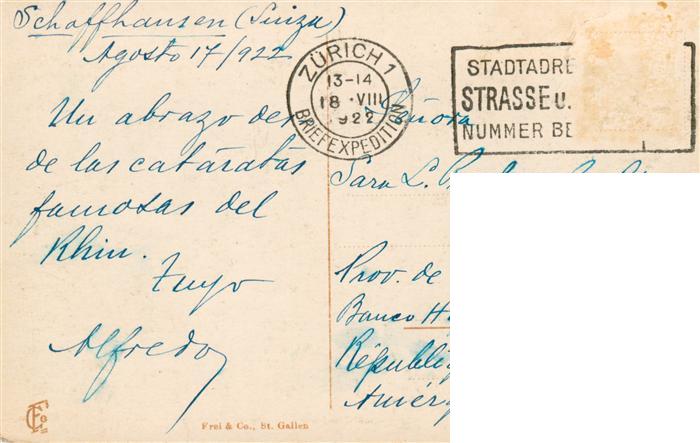 Schaffhausen (Suiza)
Agosto 17/922
Un abrazo des
de las cataratas
famosas del
Rhin.
Tuyo
Alfredo
ZÜRICH 1
13-14
18 VIII
1922
BRIEFEXPEDITION
STADTADRE
STRASSE u.
NUMMER BE
Señora
Sara L.
Prov. de
Banco H
Républi
Amér
Frei & Co., St. Gallen